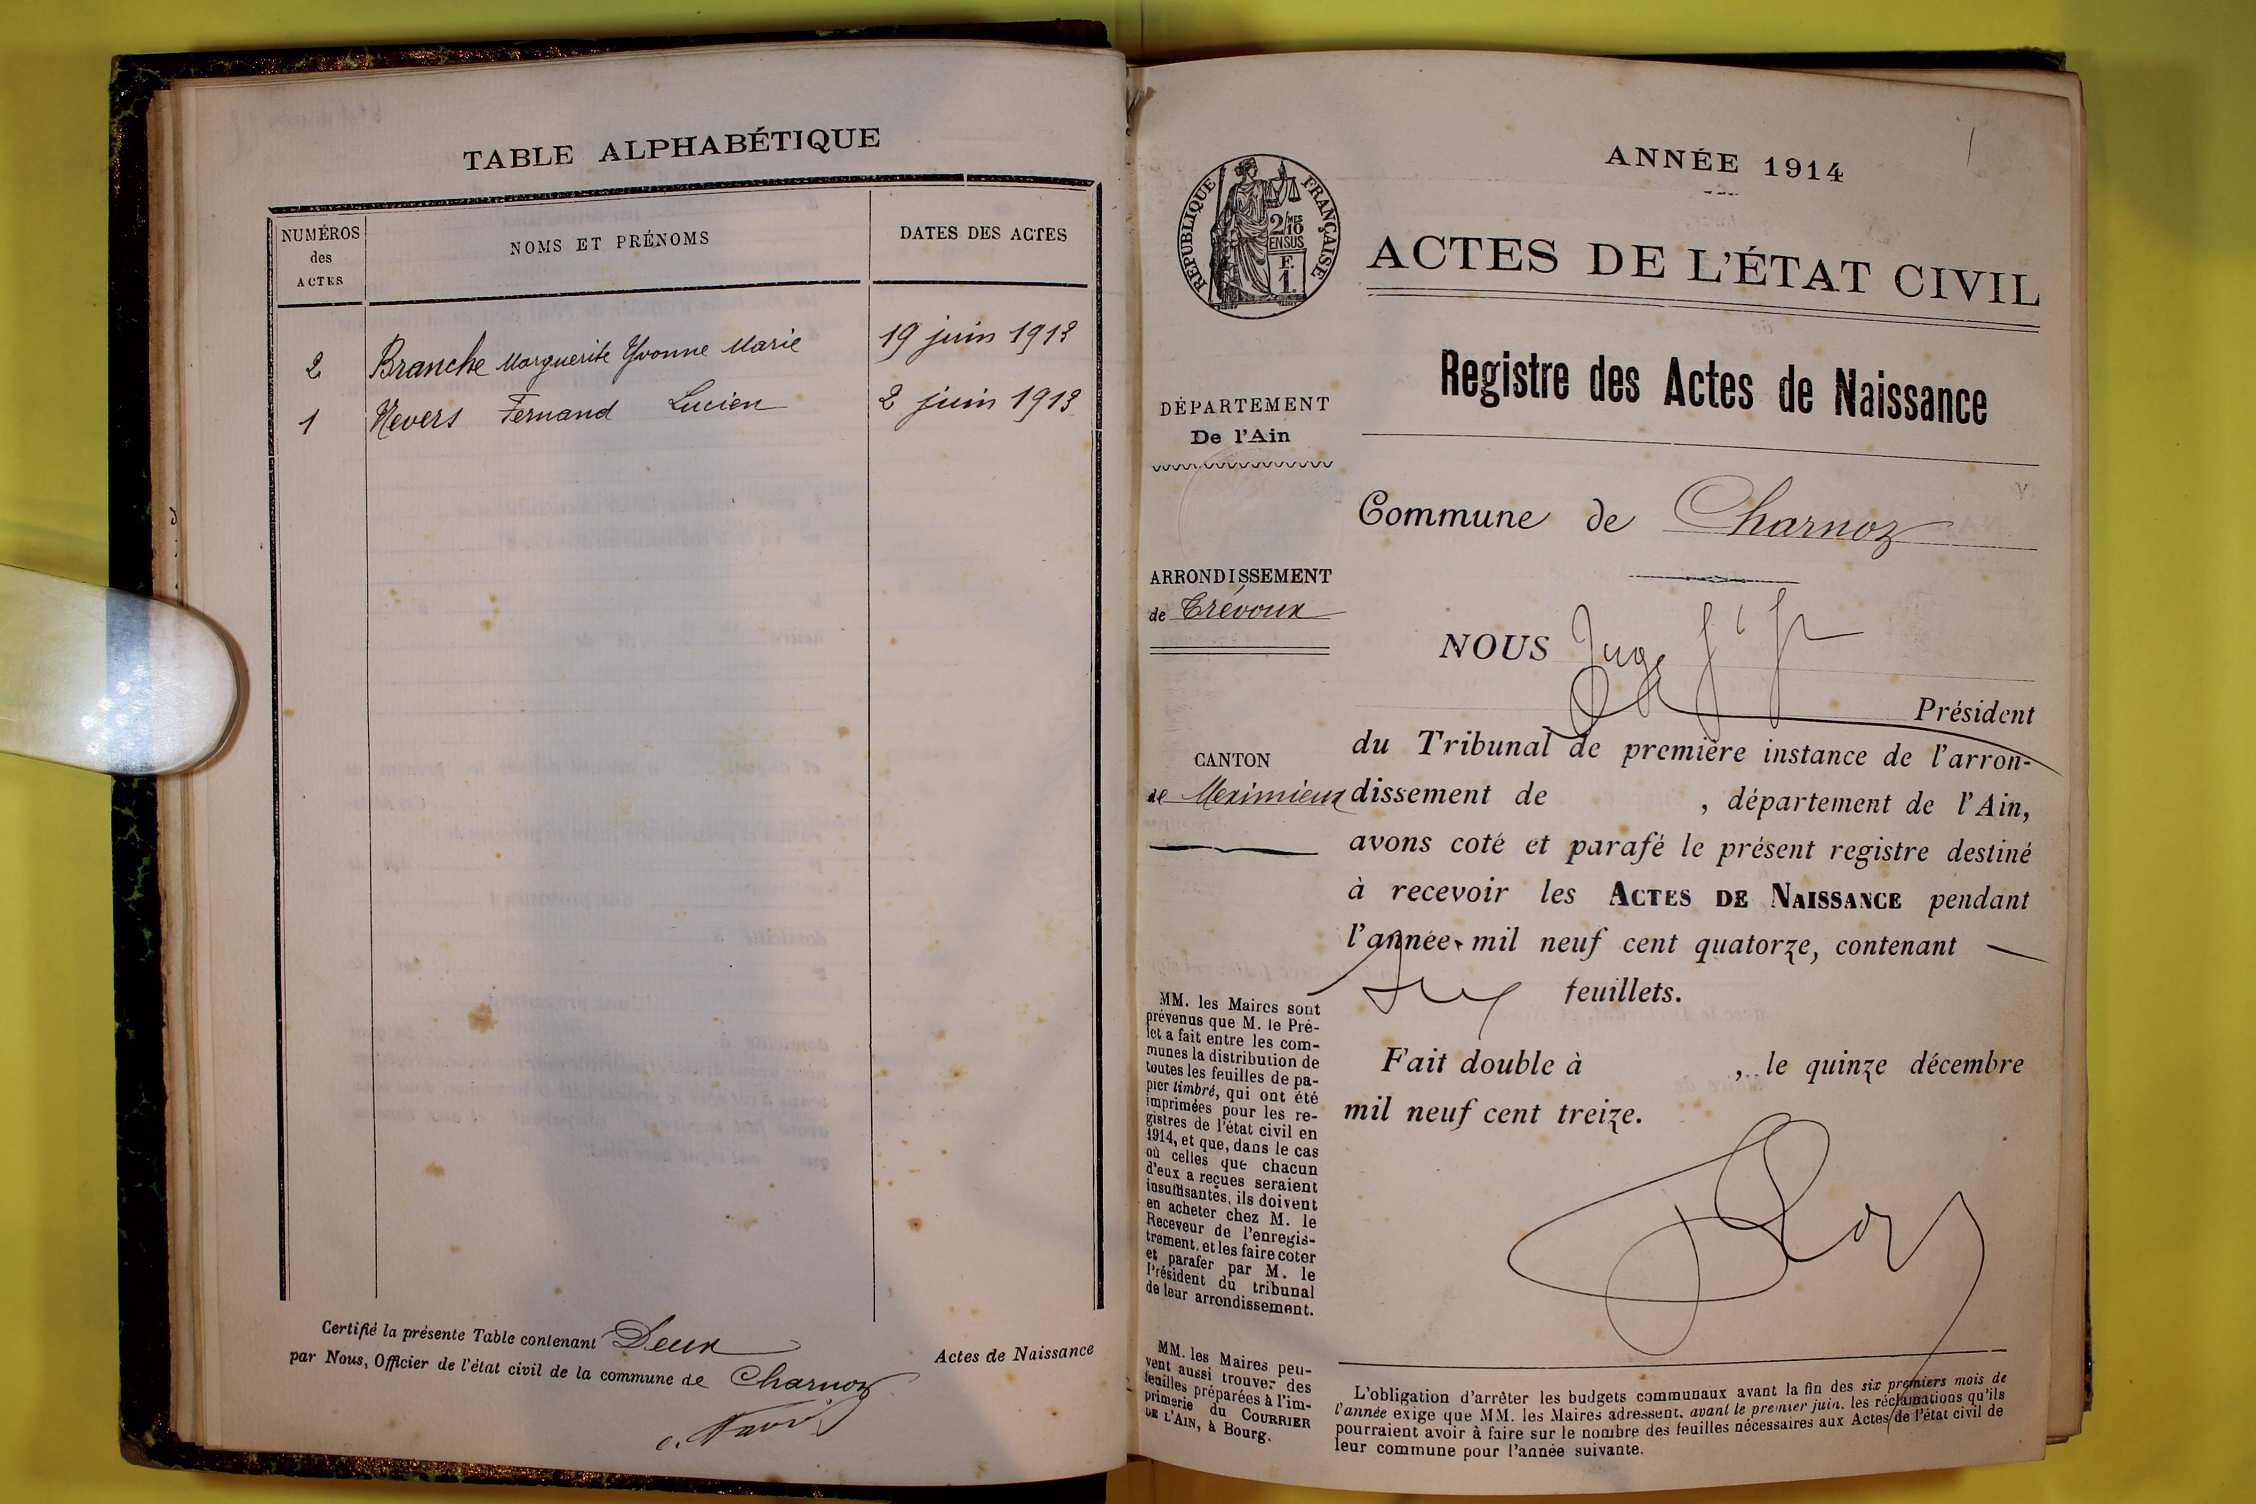 TABLE ALPHABÉTIQUE
NUMÉROS
des
ACTES
NOMS ET PRÉNOMS
DATES DES ACTES
2 Branche Marguerite Yvonne Marie 19 juin 1913
1 Nevers Fernand Lucien 2 juin 1913
Certifié la présente Table contenant Deux Actes de Naissance
par Nous, Officier de l'état civil de la commune de Charnoz
ANNÉE 1914
RÉPUBLIQUE FRANÇAISE
2/10 MES
EN SUS
F.
1.
ACTES DE L'ÉTAT CIVIL
Registre des Actes de Naissance
DÉPARTEMENT
De l'Ain
Commune de Charnoz
ARRONDISSEMENT
de Trévoux
CANTON
de Meximieux
NOUS Juge
Président
du Tribunal de première instance de l'arron-
dissement de , département de l'Ain,
avons coté et parafé le présent registre destiné
à recevoir les ACTES DE NAISSANCE pendant
l'année mil neuf cent quatorze, contenant
feuillets.
Fait double à , le quinze décembre
mil neuf cent treize.
MM. les Maires sont
prévenus que M. le Pré-
fet a fait entre les com-
munes la distribution de
toutes les feuilles de pa-
pier timbré, qui ont été
imprimées pour les re-
gistres de l'état civil en
1914, et que, dans le cas
où celles que chacun
d'eux a reçues seraient
insuffisantes, ils doivent
en acheter chez M. le
Receveur de l'enregis-
trement, et les faire coter
et parafer par M. le
Président du tribunal
de leur arrondissement.
MM. les Maires peu-
vent aussi trouver des
feuilles préparées à l'im-
primerie du COURRIER
DE L'AIN, à Bourg.
L'obligation d'arrêter les budgets communaux avant la fin des six premiers mois de
l'année exige que MM. les Maires adressent, avant le premier juin, les réclamations qu'ils
pourraient avoir à faire sur le nombre des feuilles nécessaires aux Actes de l'état civil de
leur commune pour l'année suivante.